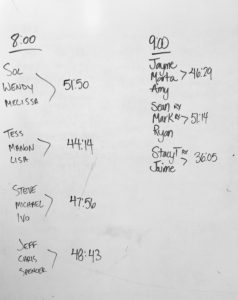 8:00
SOL
WENDY 51:50
MELISSA
TESS
MANON 44:14
LISA
STEVE
MICHAEL 47:56
IVO
JEFF
CHRIS 48:43
SPENCER
9:00
Jayme
Marta 46:29
Amy
Sean RX
Mark RX 51:14
Ryan
Stacy T RX 36:05
Jaime